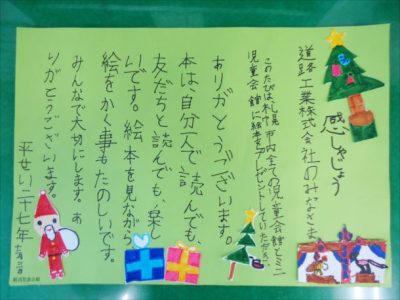 感しゃじょう
道路工業株式会社のみなさま
このたびは、札幌市内全ての児童会館とミニ
児童会館に絵本をプレゼントしていただき
ありがとうございます。
本は、自分一人で読んでも、
友だちと読んでも、楽し
いです。絵本を見ながら
絵をかく事もたのしいです。
みんなで大切にします。あ
りがとうございます。
平せい二十七年